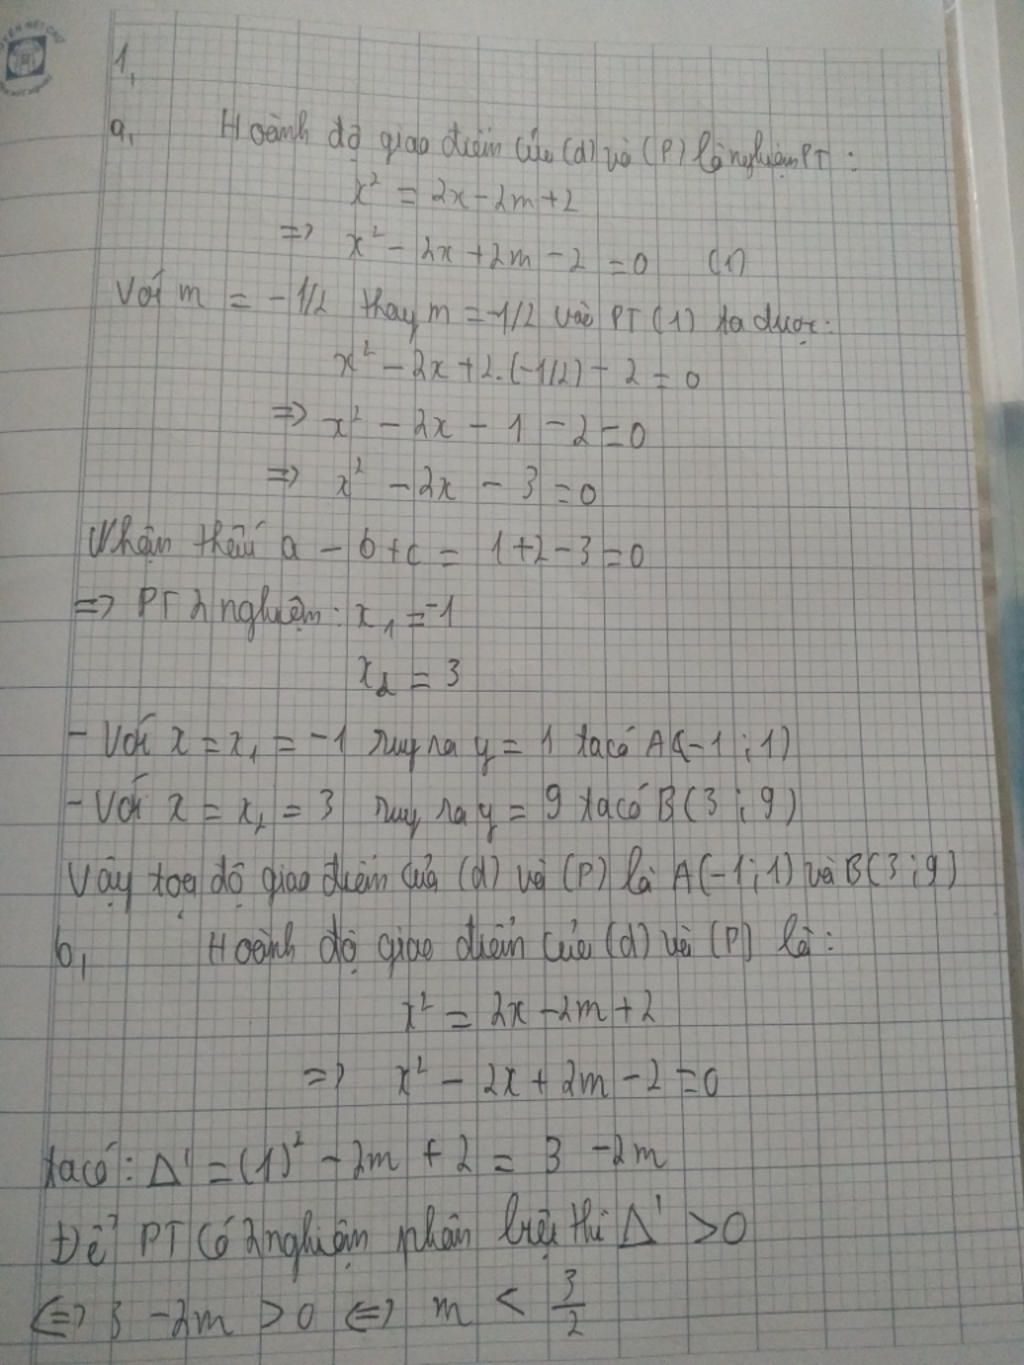 1,
a, Hoành độ giao điểm của (d) và (P) là nghiệm PT :
x² = 2x - 2m + 2
=> x² - 2x + 2m - 2 = 0 (1)
Với m = -1/2 thay m = -1/2 vào PT (1) ta được:
x² - 2x + 2.(-1/2) - 2 = 0
=> x² - 2x - 1 - 2 = 0
=> x² - 2x - 3 = 0
Nhận thấy a - b + c = 1 + 2 - 3 = 0
=> PT 2 nghiệm: x₁ = -1
x₂ = 3
- Với x = x₁ = -1 suy ra y = 1 ta có A(-1 ; 1)
- Với x = x₂ = 3 suy ra y = 9 ta có B(3 ; 9)
Vậy tọa độ giao điểm của (d) và (P) là A(-1 ; 1) và B(3 ; 9)
b, Hoành độ giao điểm của (d) và (P) là:
x² = 2x - 2m + 2
=> x² - 2x + 2m - 2 = 0
ta có : Δ' = (1)² - 2m + 2 = 3 - 2m
Để PT có 2 nghiệm phân biệt thì Δ' > 0
<=> 3 - 2m > 0 <=> m < 3/2